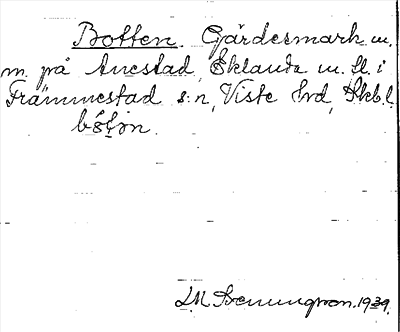 Botten. Gärdesmark m.
m. på Anestad, Eklanda m. fl. i
Främmestad s:n, Viste hd, Skb. l.
bŏ́tən.
LM Svenungsson. 1939.